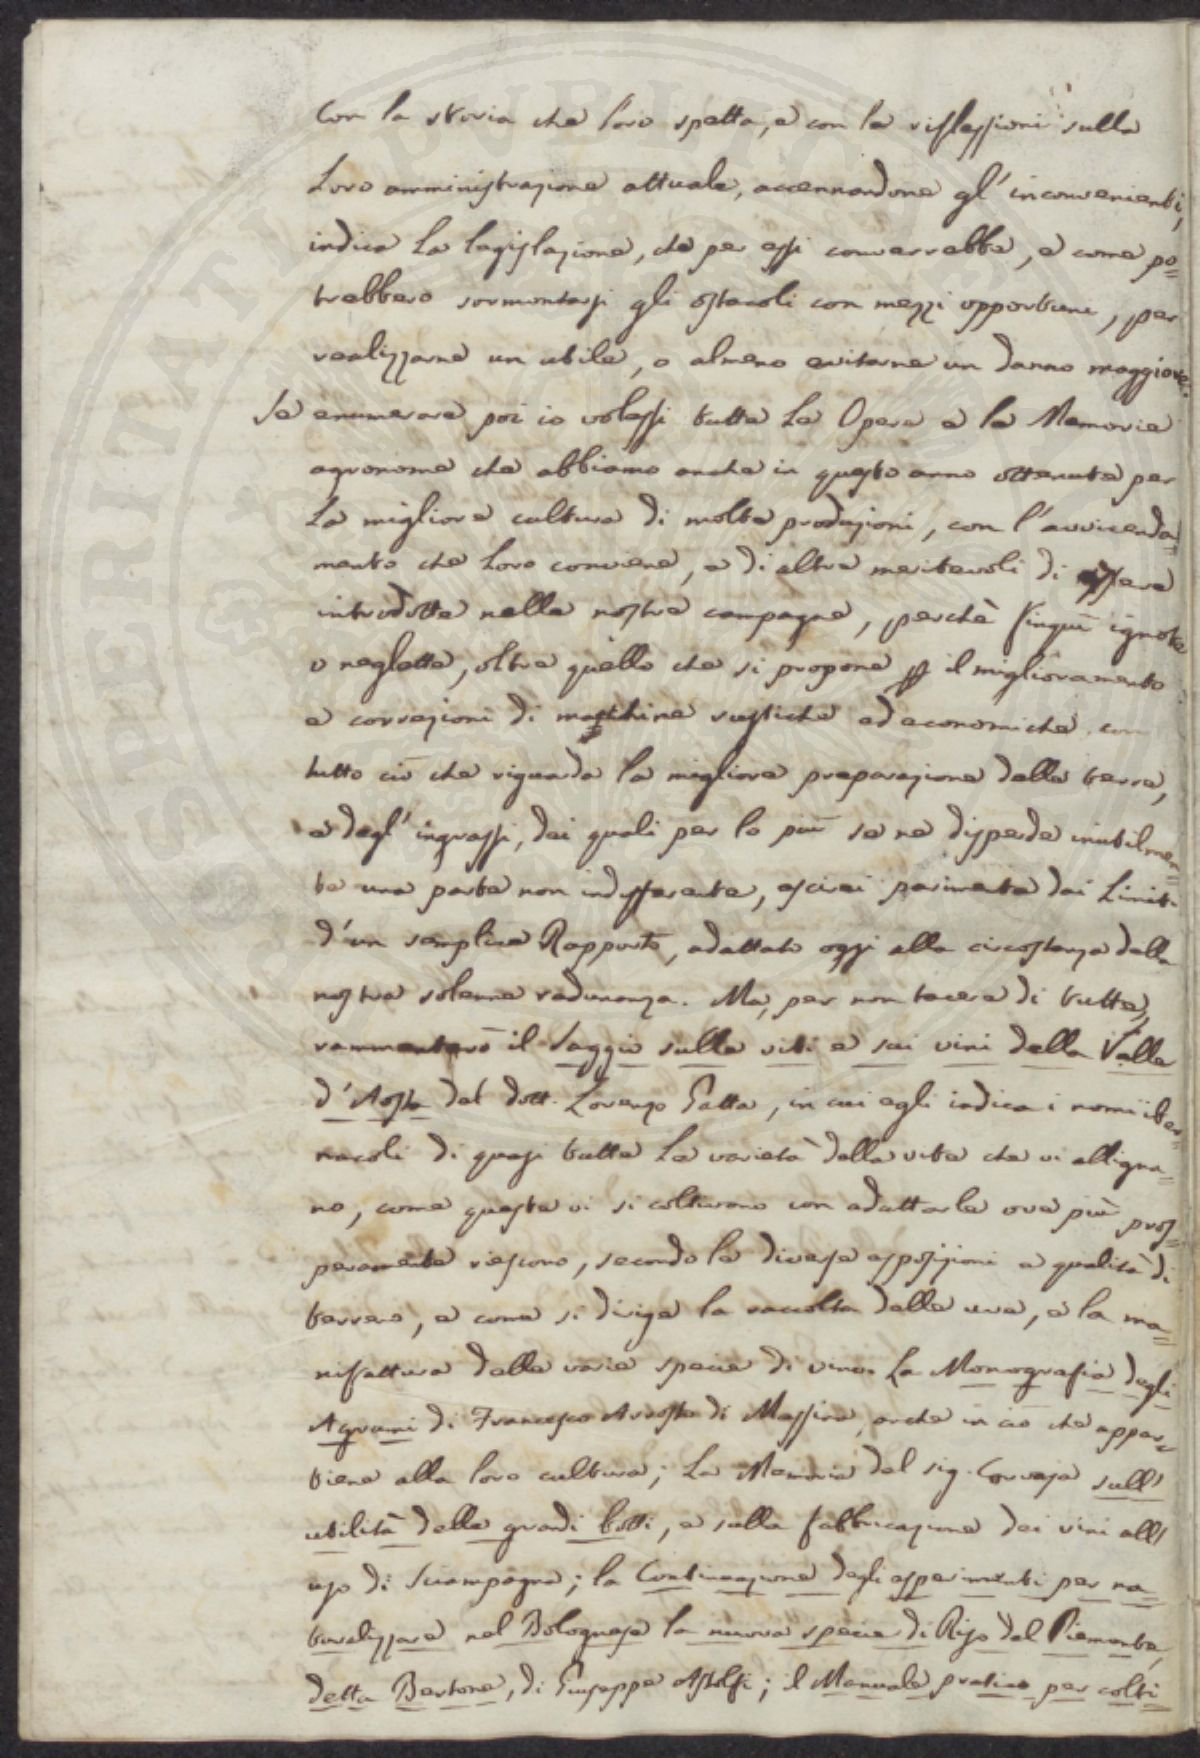 Con la storia che loro spetta, e con le riflessioni sulla
loro amministrazione attuale, accennandone gl'inconvenienti,
indica la legislazione, che per essi converrebbe, e come po=
trebbero sormontarsi gli ostacoli con mezzi opportuni, per
realizzarne un utile, o almeno evitarne un danno maggiore.
Se enumerare poi io volessi tutte le Opere e le Memorie
agronome che abbiamo anche in questo anno ottenute per
la migliore cultura di molte produzioni, con l'avvicenda=
mento che loro conviene, e di altre meritevoli di essere
introdotte nelle nostre campagne, perchè finqui ignote
o neglette, oltre quello che si propone il miglioramento
e correzioni di macchine rustiche ed economiche, con
tutto ciò che riguarda la migliore preparazione delle terre,
e degl'ingrassi, dei quali per lo più se ne disperde inutilmen=
te una parte non indifferente, escirei parimente dai limiti
d'un semplice Rapporto, adattato oggi alla circostanza della
nostra solenne radunanza. Ma, per non tacere di tutte,
rammenterò il Saggio sulle viti e sui vini della Valle
d'Aosta del dott. Lorenzo Gatta, in cui egli indica i nomi ver=
nacoli di quasi tutte le varietà delle vite che vi alligna=
no, come queste vi si coltivano con adattarle ove più pros=
peramente riescono, secondo le diverse esposizioni e qualità di
terreno, e come si dirige la raccolta delle uve, e la ma=
nifattura delle varie specie di vino. La Monografia degli
Agrumi di Francesco Arrosto di Messina, anche in ciò che appar=
tiene alla loro cultura; la Memoria del sig. Corvaja sull'
utilità delle grandi botti, e sulla fabbricazione dei vini all'
uso di Sciampagna; la Continuazione degli esperimenti per na=
turalizzare nel Bolognese la nuova specie di Riso del Piemonte,
detta Bertone, di Giuseppe Astolfi; il Manuale pratico per colti=
SPERITATI PUBLICAE